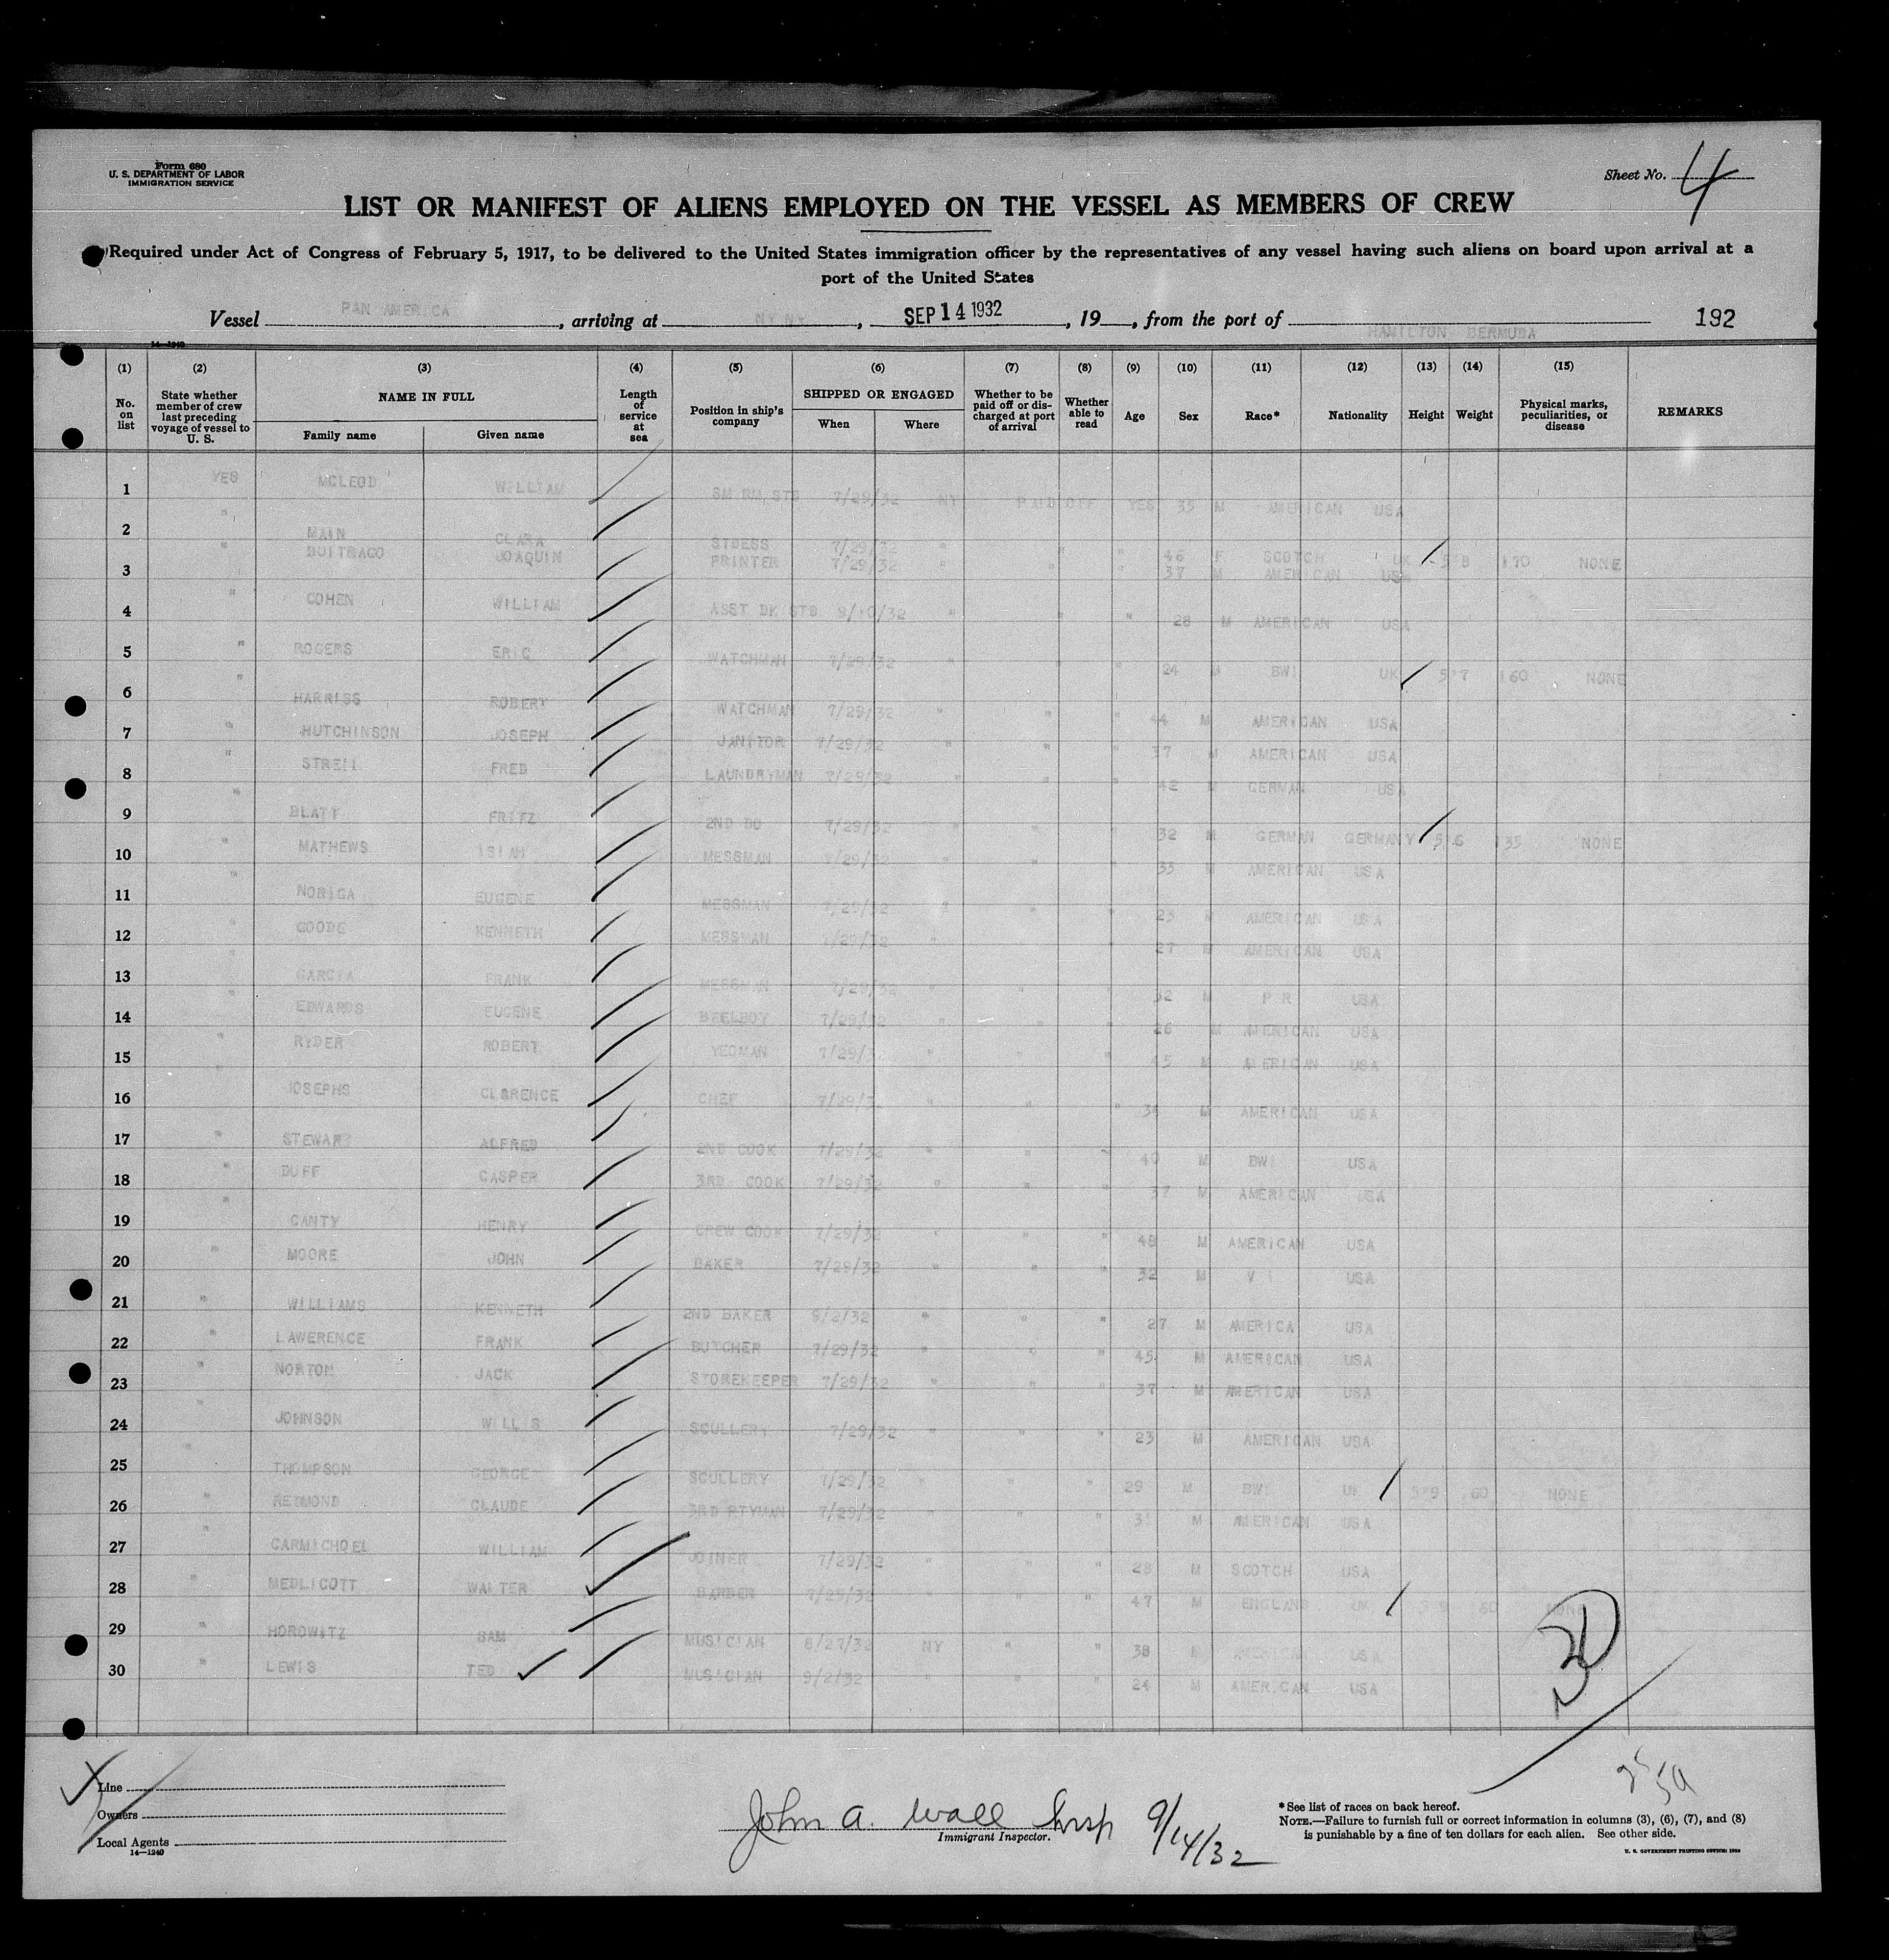 Form 680
U. S. DEPARTMENT OF LABOR
IMMIGRATION SERVICE
Sheet No. 4
LIST OR MANIFEST OF ALIENS EMPLOYED ON THE VESSEL AS MEMBERS OF CREW
Required under Act of Congress of February 5, 1917, to be delivered to the United States immigration officer by the representatives of any vessel having such aliens on board upon arrival at a
port of the United States
Vessel PAN AMERICA, arriving at NY NY, SEP 14 1932, 19, from the port of HAMILTON BERMUDA 192
14—1240
(1) (2) (3) (4) (5) (6) (7) (8) (9) (10) (11) (12) (13) (14) (15)
No. on list State whether member of crew last preceding voyage of vessel to U. S. NAME IN FULL Family name Given name Length of service at sea Position in ship's company SHIPPED OR ENGAGED When Where Whether to be paid off or discharged at port of arrival Whether able to read Age Sex Race* Nationality Height Weight Physical marks, peculiarities, or disease REMARKS
1 YES MCLEOD WILLIAM SM RM STD 7/29/32 NY PAID OFF YES 35 M AMERICAN USA
2 " MAIN CLARA STDESS 7/29/32 " " " 46 F SCOTCH UK 5 8 170 NONE
3 " BUITRAGO JOAQUIN PRINTER 7/29/32 " " " 37 M AMERICAN USA
4 " COHEN WILLIAM ASST DK STD 9/10/32 " " " 28 M AMERICAN USA
5 " ROGERS ERIC WATCHMAN 7/29/32 " " " 24 M BWI UK 5"7 160 NONE
6 " HARRISS ROBERT WATCHMAN 7/29/32 " " " 44 M AMERICAN USA
7 " HUTCHINSON JOSEPH JANITOR 7/29/32 " " " 37 M AMERICAN USA
8 " STRELL FRED LAUNDRYMAN 7/29/32 " " " 42 M GERMAN USA
9 " BLATT FRITZ 2ND DO 7/29/32 " " " 32 M GERMAN GERMANY 5"6 135 NONE
10 " MATHEWS MESSMAN 7/29/32 " " 33 M AMERICAN USA
11 " NORIGA EUGENE MESSMAN 7/29/32 " " 23 M AMERICAN USA
12 " GOODE KENNETH MESSMAN 7/29/32 " 27 M AMERICAN USA
13 " GARCIA FRANK MESSMAN 7/29/32 " " " 32 M P R USA
14 " EDWARDS EUGENE BEELBOY 7/29/32 " " " 26 M AMERICAN USA
15 " RYDER ROBERT YEOMAN 7/29/32 " " " 45 M AMERICAN USA
16 " JOSEPHS CLARENCE CHEF 7/29/32 " " " 34 M AMERICAN USA
17 " STEWART ALFRED 2ND COOK 7/29/32 " " " 40 M BWI USA
18 " DUFF CASPER 3RD COOK 7/29/32 " " " 37 M AMERICAN USA
19 " CANTY HENRY CREW COOK 7/29/32 " " " 48 M AMERICAN USA
20 " MOORE JOHN BAKER 7/29/32 " " " 32 M V I USA
21 " WILLIAMS KENNETH 2ND BAKER 9/2/32 " " " 27 M AMERICA USA
22 " LAWERENCE FRANK BUTCHER 7/29/32 " " " 45 M AMERICAN USA
23 " NORTON JACK STOREKEEPER 7/29/32 " " " 37 M AMERICAN USA
24 " JOHNSON WILLIS SCULLERY 7/29/32 " " " 23 M AMERICAN USA
25 " THOMPSON GEORGE SCULLERY 7/29/32 " " " 29 M BWI UK 5"9 160 NONE
26 " REDMOND CLAUDE 3RD PTYMAN 7/29/32 " " " 31 M AMERICAN USA
27 " CARMICHOEL WILLIAM JOINER 7/29/32 " " " 28 M SCOTCH USA
28 " MEDLICOTT WALTER BARBER 7/29/32 " " " 47 M ENGLAND UK NONE
29 " HOROWITZ SAM MUSICIAN 8/27/32 NY " " 38 M AMERICAN USA
30 " LEWIS TED MUSICIAN 9/2/32 " " " 24 M AMERICAN USA
30
Line
Owners
Local Agents
14—1240
John A. Wall Insp 9/14/32
Immigrant Inspector.
* See list of races on back hereof.
NOTE.—Failure to furnish full or correct information in columns (3), (6), (7), and (8)
is punishable by a fine of ten dollars for each alien. See other side.
U. S. GOVERNMENT PRINTING OFFICE: 1929